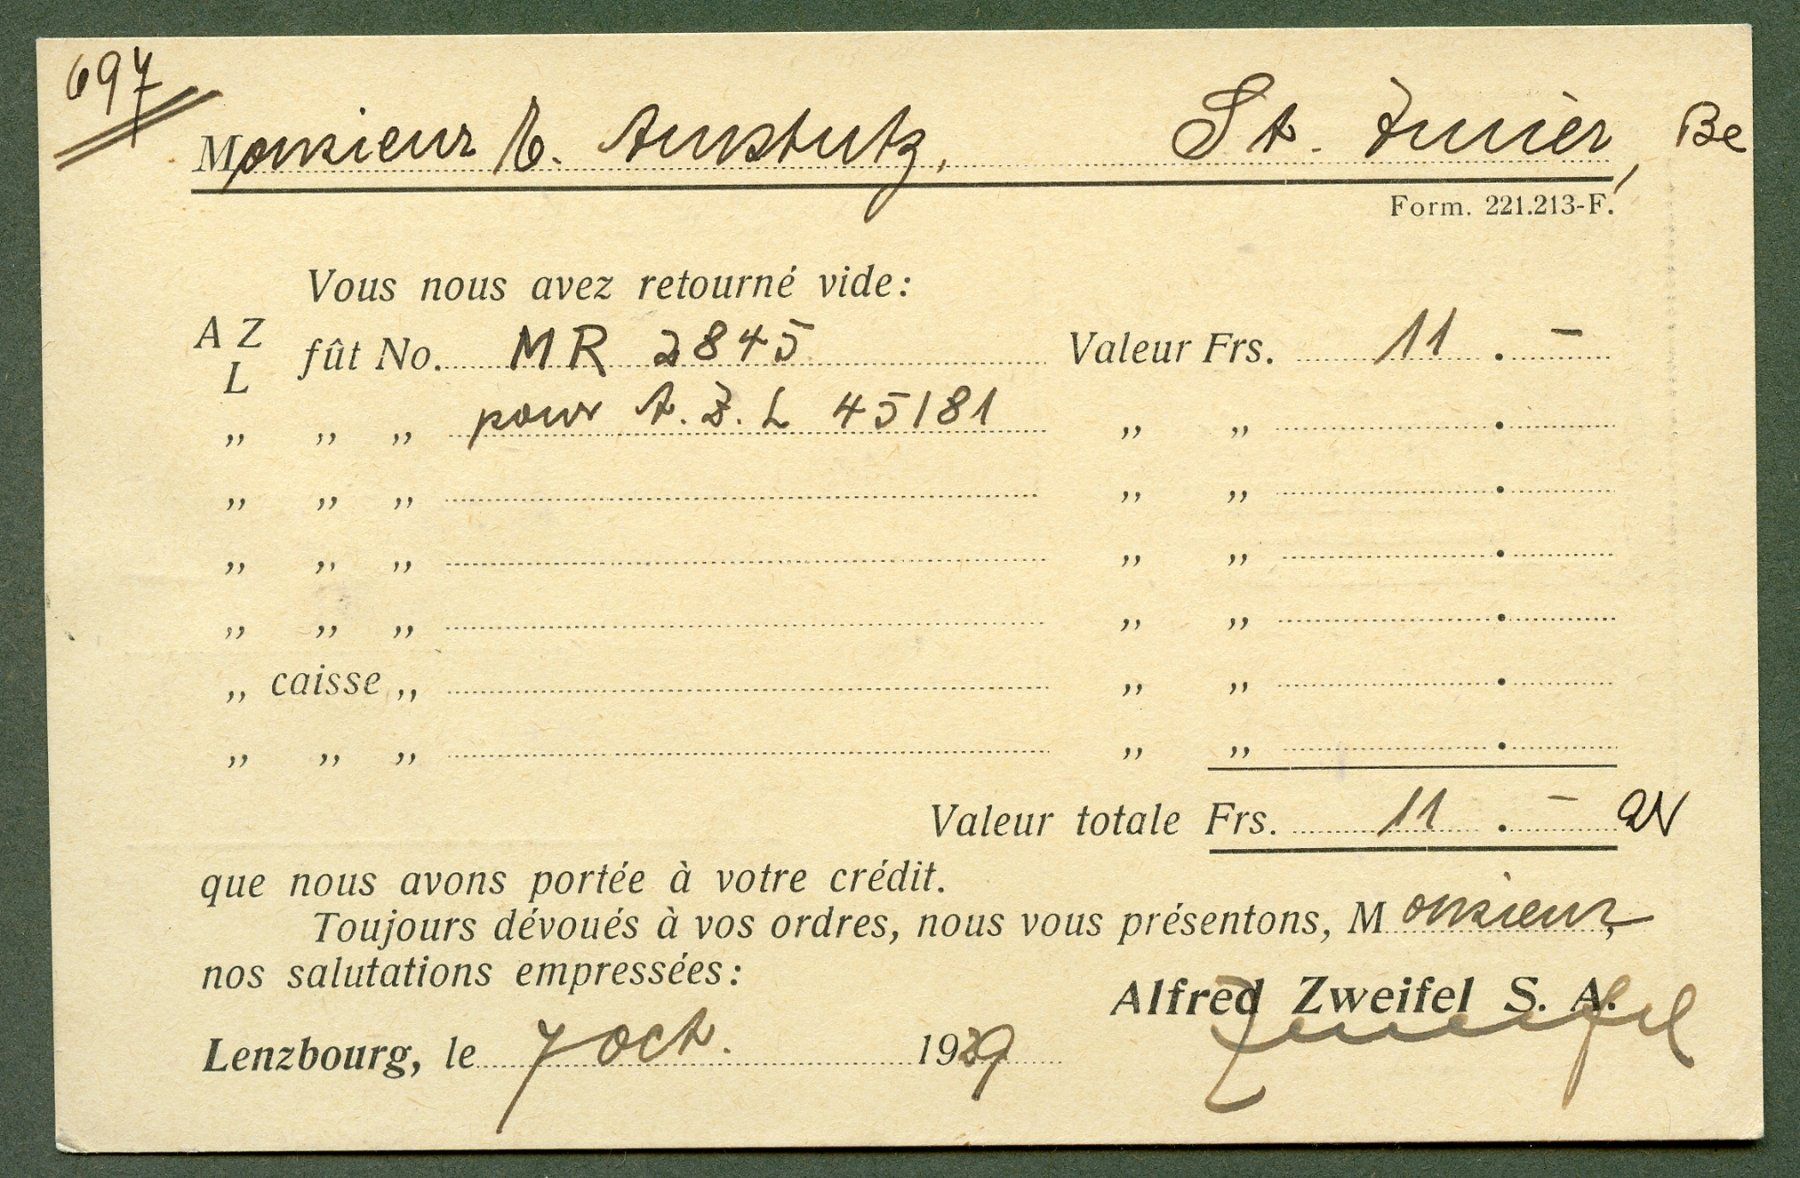 697
Monsieur E. Amstutz, St. Imier, Be
Form. 221.213-F.
Vous nous avez retourné vide:
A Z
L
fût No. MR 2845 Valeur Frs. 11 . –
„ „ „ pour A. Z. L 45181 „ „ .
„ „ „ „ „ .
„ „ „ „ „ .
„ „ „ „ „ .
„ caisse „ „ „ .
„ „ „ „ „ .
Valeur totale Frs. 11 . –
que nous avons portée à votre crédit.
Toujours dévoués à vos ordres, nous vous présentons, Monsieur,
nos salutations empressées:
Alfred Zweifel S. A.
Zweifel
Lenzbourg, le 7 oct. 1929